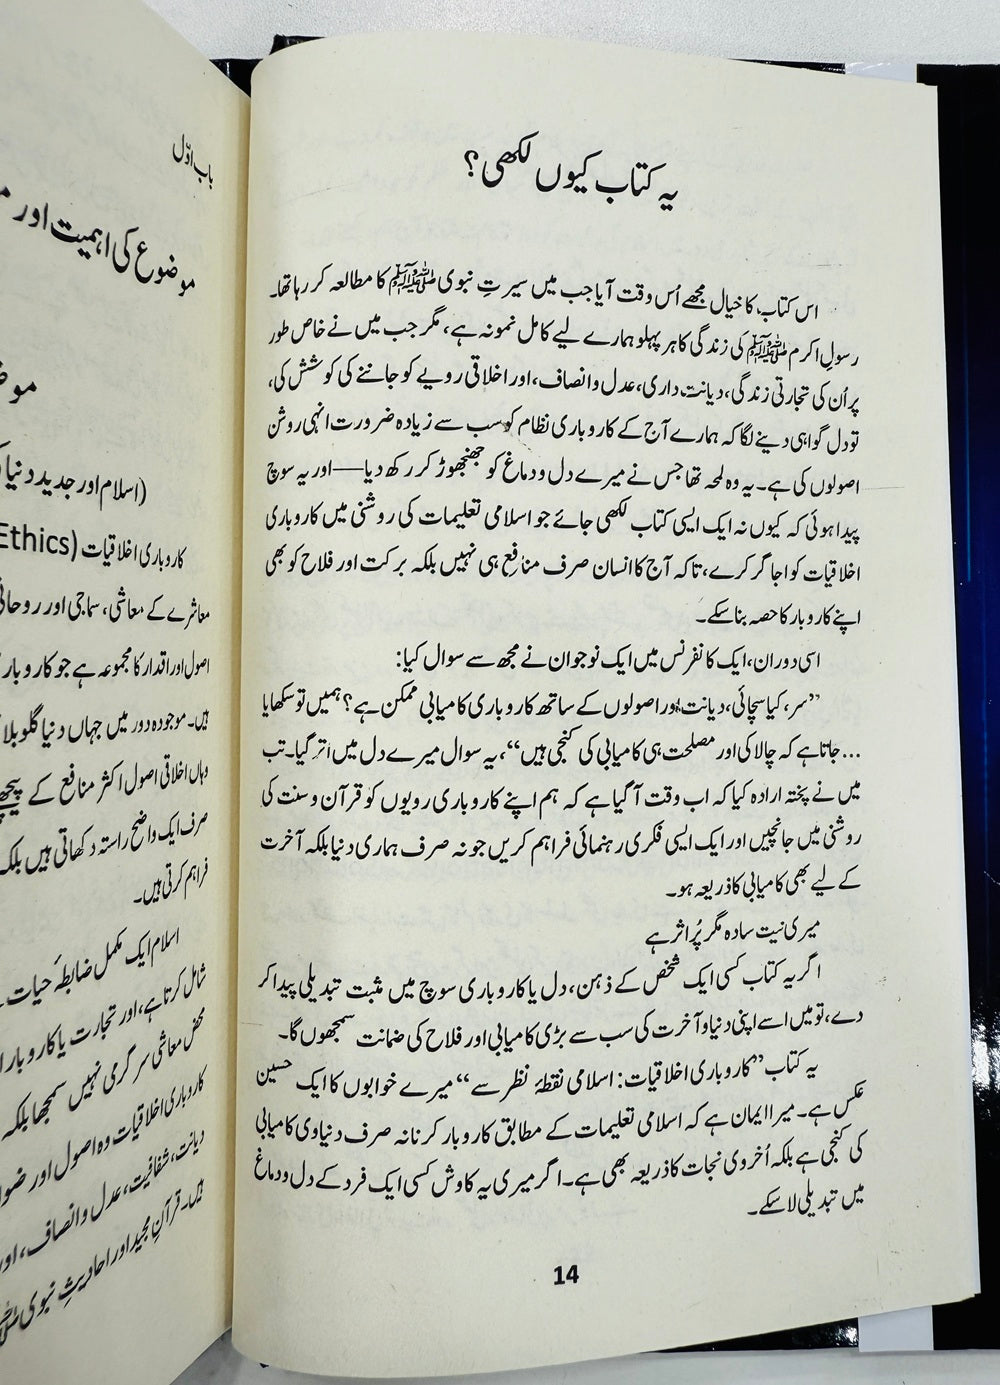 یہ کتاب کیوں لکھی؟
اس کتاب کا خیال مجھے اُس وقت آیا جب میں سیرتِ نبوی ﷺ کا مطالعہ کر رہا تھا۔
رسولِ اکرم ﷺ کی زندگی کا ہر پہلو ہمارے لیے کامل نمونہ ہے، مگر جب میں نے خاص طور
پر اُن کی تجارتی زندگی، دیانت داری، عدل و انصاف، اور اخلاقی رویے کو جاننے کی کوشش کی،
تو دل گواہی دینے لگا کہ ہمارے آج کے کاروباری نظام کو سب سے زیادہ ضرورت انہی روشن
اصولوں کی ہے۔ یہ وہ لمحہ تھا جس نے میرے دل و دماغ کو جھنجھوڑ کر رکھ دیا—اور یہ سوچ
پیدا ہوئی کہ کیوں نہ ایک ایسی کتاب لکھی جائے جو اسلامی تعلیمات کی روشنی میں کاروباری
اخلاقیات کو اجاگر کرے، تاکہ آج کا انسان صرف منافع ہی نہیں بلکہ برکت اور فلاح کو بھی
اپنے کاروبار کا حصہ بنا سکے۔
اسی دوران، ایک کانفرنس میں ایک نوجوان نے مجھ سے سوال کیا:
”سر، کیا سچائی، دیانت اور اصولوں کے ساتھ کاروباری کامیابی ممکن ہے؟ ہمیں تو سکھایا
جاتا ہے کہ چالاکی اور مصلحت ہی کامیابی کی کنجی ہیں“، یہ سوال میرے دل میں اتر گیا۔ تب ...
میں نے پختہ ارادہ کیا کہ اب وقت آ گیا ہے کہ ہم اپنے کاروباری رویوں کو قرآن و سنت کی
روشنی میں جانچیں اور ایک ایسی فکری رہنمائی فراہم کریں جو نہ صرف ہماری دنیا بلکہ آخرت
کے لیے بھی کامیابی کا ذریعہ ہو۔
میری نیت سادہ مگر پُر اثر ہے
اگر یہ کتاب کسی ایک شخص کے ذہن، دل یا کاروباری سوچ میں مثبت تبدیلی پیدا کر
دے، تو میں اسے اپنی دنیا و آخرت کی سب سے بڑی کامیابی اور فلاح کی ضمانت سمجھوں گا۔
یہ کتاب ”کاروباری اخلاقیات: اسلامی نقطۂ نظر سے“ میرے خوابوں کا ایک حسین
عکس ہے۔ میرا ایمان ہے کہ اسلامی تعلیمات کے مطابق کاروبار کرنا نہ صرف دنیاوی کامیابی
کی کنجی ہے بلکہ اُخروی نجات کا ذریعہ بھی ہے۔ اگر میری یہ کاوش کسی ایک فرد کے دل و دماغ
میں تبدیلی لا سکے۔
14
باب اوّل
موضوع کی اہمیت اور
(اسلام اور جدید دنیا
کاروباری اخلاقیات (Ethics
معاشرے کے معاشی، سماجی اور
اصول اور اقدار کا مجموعہ ہے جو کاروبار
ہیں۔ موجودہ دور میں جہاں دنیا
وہاں اخلاقی اصول اکثر منافع کے پیچھے
صرف ایک واضح راستہ دکھاتی ہیں بلکہ
فراہم کرتی ہیں۔
اسلام ایک مکمل ضابطۂ حیات
شامل کرتا ہے، اور تجارت یا کاروبار
محض معاشی سرگرمی نہیں سمجھا بلکہ
کاروباری اخلاقیات وہ اصول اور
دیانت، شفافیت، عدل و انصاف، اور
ہیں۔ قرآنِ مجید اور احادیثِ نبوی ﷺ